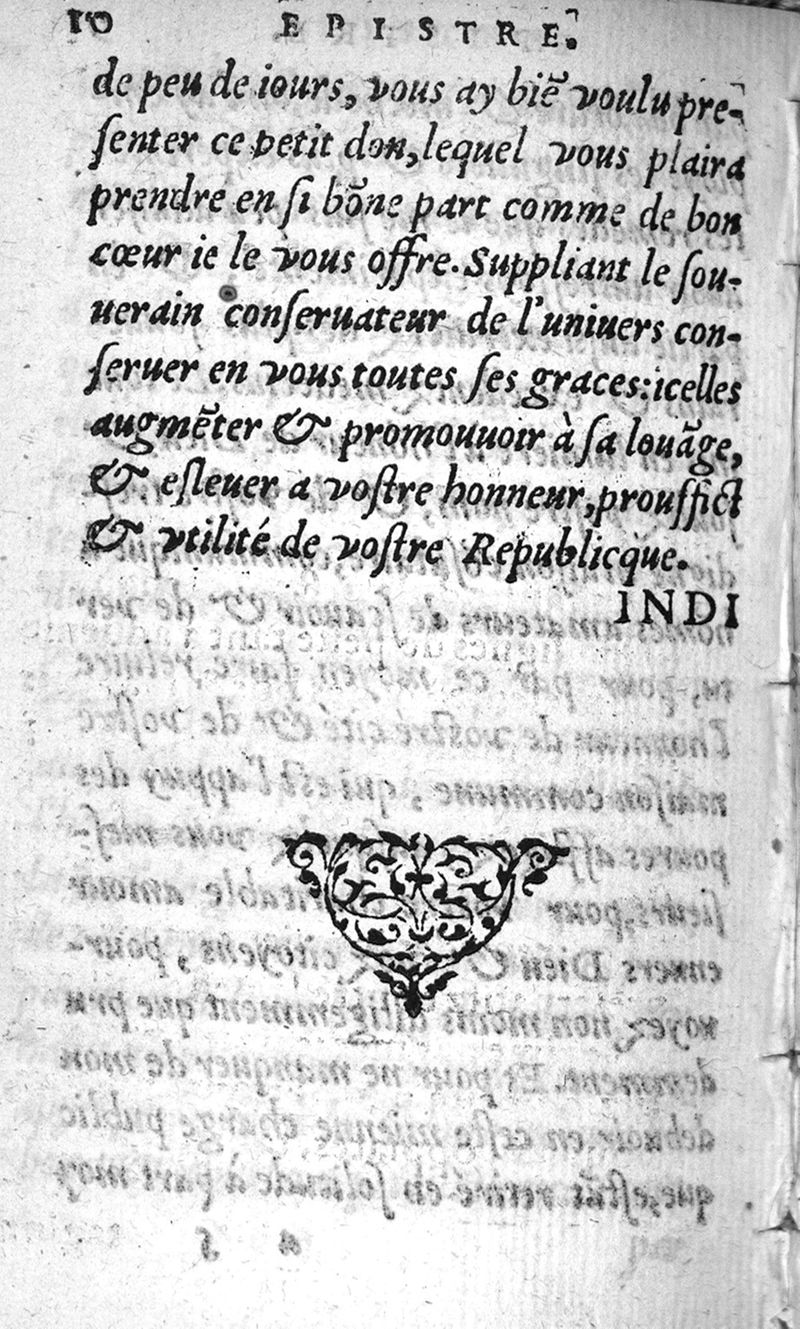 10 EPISTRE.
de peu de iours, vous ay biẽ voulu pre-
ſenter ce petit don, lequel vous plaira
prendre en ſi bõne part comme de bon
cœur ie le vous offre. Suppliant le ſou-
uerain conſeruateur de l'uniuers con-
ſeruer en vous toutes ſes graces: icelles
augmẽter & promouuoir à ſa louãge,
& eſleuer a voſtre honneur, prouffict
& vtilité de voſtre Republicque.
INDI